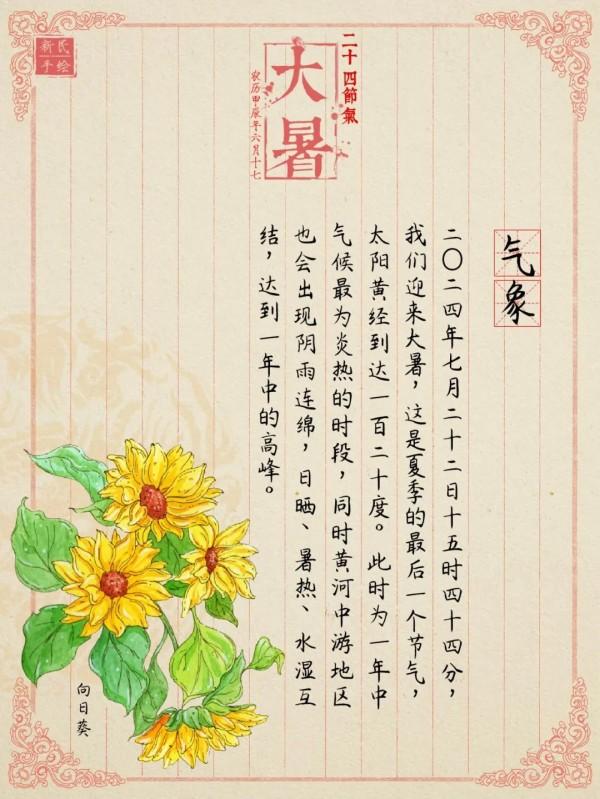 新民
手绘
二十四節氣
大暑
农历甲辰年六月十七
气象
二〇二四年七月二十二日十五时四十四分，
我们迎来大暑，这是夏季的最后一个节气，
太阳黄经到达一百二十度。此时为一年中
气候最为炎热的时段，同时黄河中游地区
也会出现阴雨连绵，日晒、暑热、水湿互
结，达到一年中的高峰。
向日葵